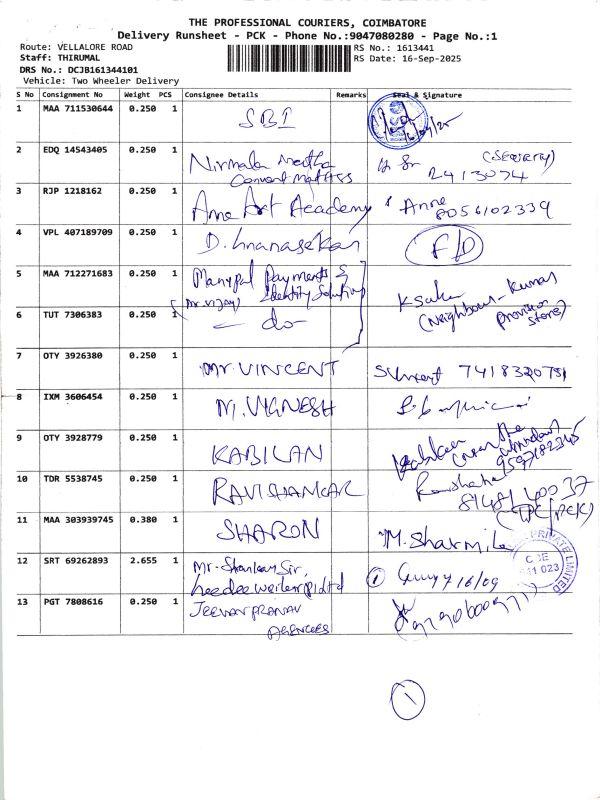 THE PROFESSIONAL COURIERS, COIMBATORE
Delivery Runsheet - PCK - Phone No.:9047080280 - Page No.:1
Route: VELLALORE ROAD
RS No.: 1613441
Staff: THIRUMAL
RS Date: 16-Sep-2025
DRS No.: DCJB161344101
Vehicle: Two Wheeler Delivery
S No Consignment No Weight PCS Consignee Details Remarks Seal & Signature
1 MAA 711530644 0.250 1 SBI
2 EDQ 14543405 0.250 1 Nirmala (Security)
Convent 2413074
3 RJP 1218162 0.250 1 Anne Art Academy Anne
8056102339
4 VPL 407189709 0.250 1 D. Gnanasekar F/D
5 MAA 712271683 0.250 1 Manypal Payments &
(Mr. Vijay) Identity Solution
(Neighbour - Kumar
Provision
Store)
6 TUT 7306383 0.250 1 - do -
7 OTY 3926380 0.250 1 Mr. VINCENT 7418320751
8 IXM 3606454 0.250 1 M. VIGNESH
9 OTY 3928779 0.250 1 KABILAN
9597182345
10 TDR 5538745 0.250 1 RAVISHANKAR
(TPC/PCK)
11 MAA 303939745 0.380 1 SHARON M. Sharmila
12 SRT 69262893 2.655 1 Mr. Shankar Sir, 1 16/09
PRIVATE LIMITED
CBE
641 023
13 PGT 7808616 0.250 1 JEEVAN PRANAV
AGENCIES
1